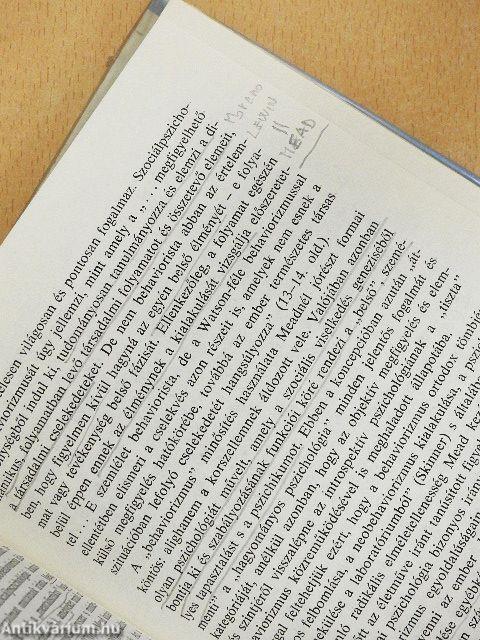 Moreno
LEWIN
||
MEAD
detesen világosan és pontosan fogalmaz. Szociálpszicho-
viorizmusát úgy jellemzi, mint amely a „... megfigyelhető
nységből indul ki tudományosan tanulmányozza és elemzi a di-
mikus, folyamatban levő társadalmi folyamatot és összetevő elemeit,
társadalmi cselekedeteket. De nem behaviorista abban az értelem-
ben, hogy figyelmen kívül hagyná az egyén belső élményét – e folya-
mat vagy tevékenység belső fázisát. Ellenkezőleg, a folyamat egészén
belül éppen ennek az élménynek a kialakulását vizsgálja előszeretet-
tel ... E szemlélet behaviorista, de a Watson-féle behaviorizmussal
ellentétben elismeri a cselekvés azon részeit is, amelyek nem esnek a
külső megfigyelés hatókörébe, továbbá az ember természetes társas
szituációban lefolyó cselekedetét hangsúlyozza” (13–14. old.).
A „behaviorizmus” minősítés használata Meadnél jórészt formai
köntös: alighanem a korszellemnek áldozott vele. Valójában azonban
olyan pszichológiát művelt, amely a szociális viselkedés geneziséből
bontja ki és szabályozásának funkciója köré rendezi a „belső”, szemé-
lyes tapasztalást s a pszichikumot. Ebben a koncepcióban azután „át-
menti” a „hagyományos pszichológia” minden jelentős fogalmát és
kategóriáját, anélkül azonban, hogy az objektív megfigyelés és elem-
zés szintjéről visszalépne az introspektív pszichológiának a „tiszta”
behaviorizmus közreműködésével is meghaladott állapotába.
feltehetjük ezért, hogy a behaviorizmus ortodox
felbomlása, a neobehaviorizmus kialakulása, a
ülése a laboratóriumból” (Skinner) s általá
radikális elméletellenesség Mead
az életműve iránt tanúsított
pszichológia bizonyos
egyoldalúságai
az ember
Antikvárium.hu